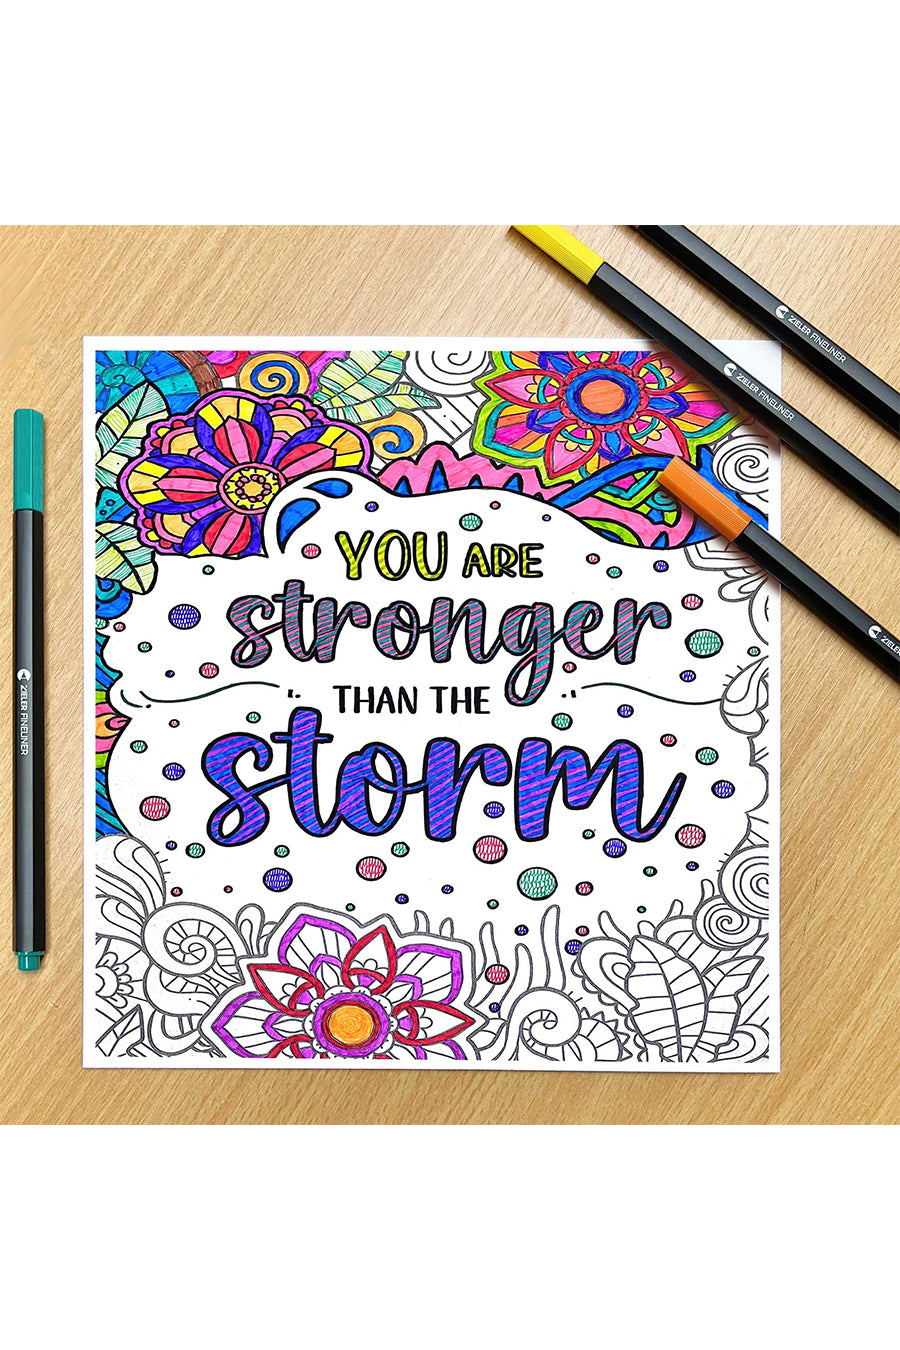 YOU ARE
stronger
THAN THE
storm
ZIELER FINELINER
ZIELER FINELINER
ZIELER FINELINER
ZIELER FINE